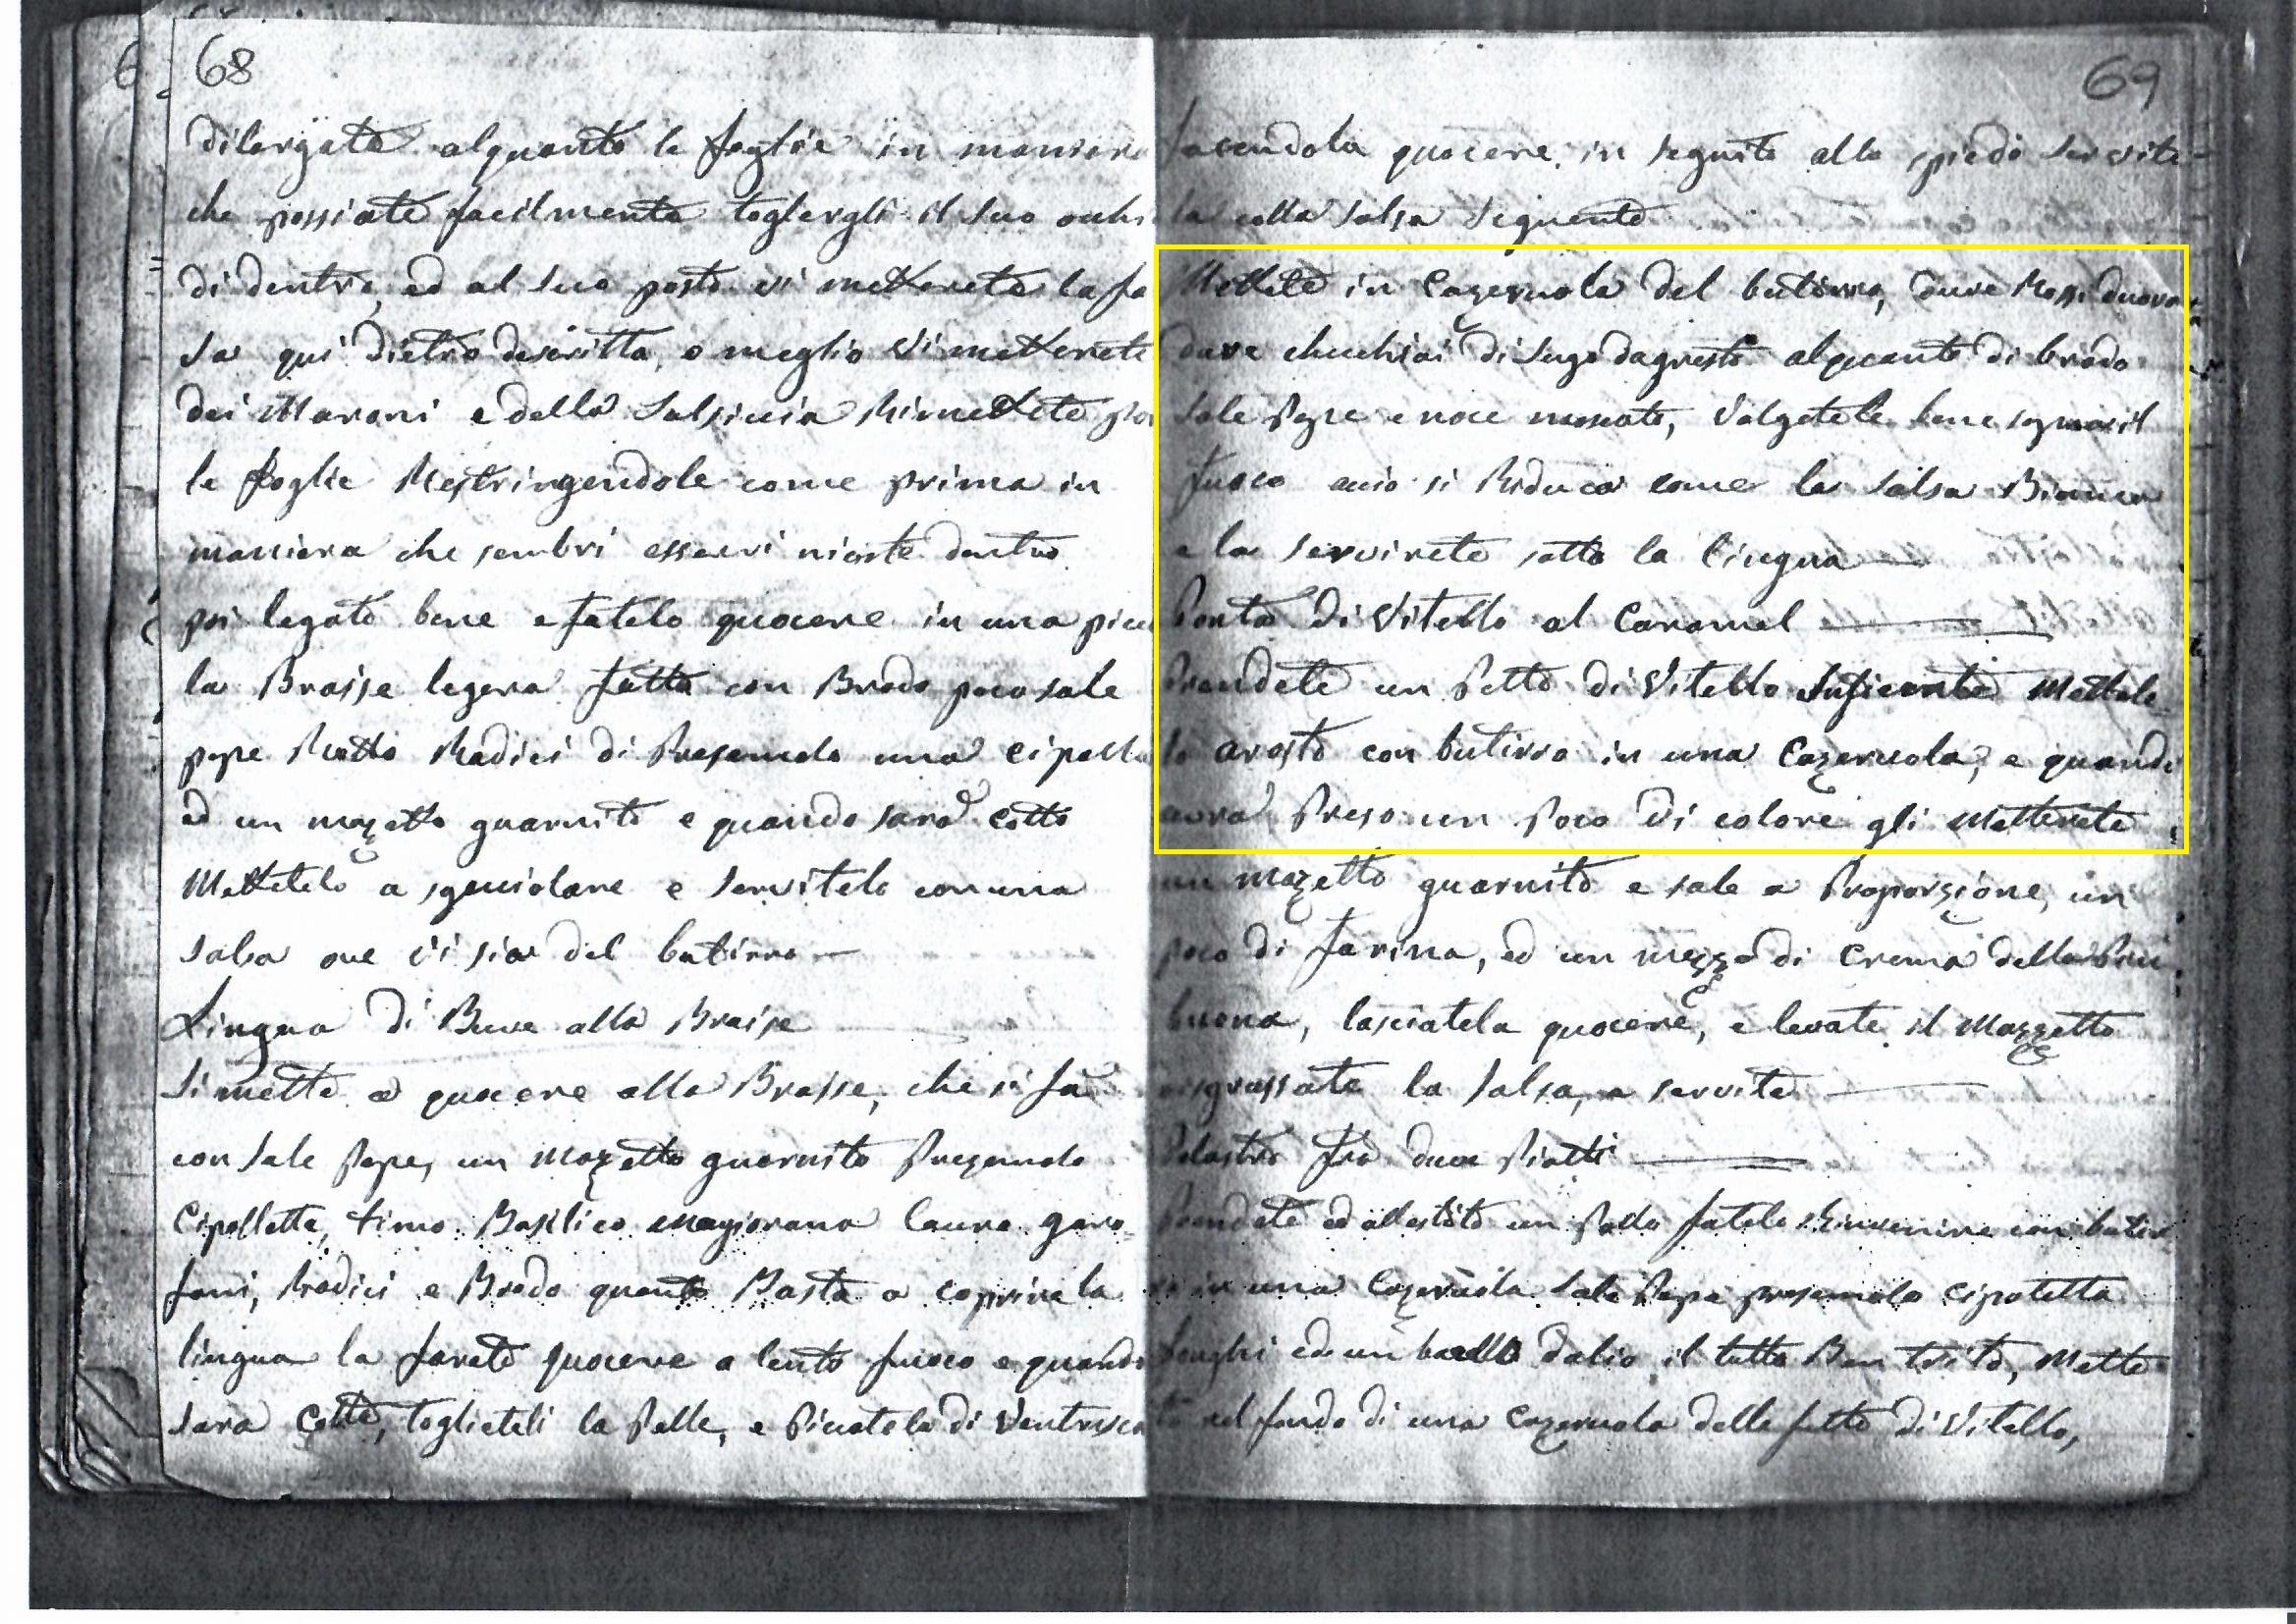 68
dilargate alquanto le foglie in maniera
che possiate facilmente toglergli il suo
di dentro, ed al suo posto vi metterete la fa
sa qui dietro descritta, o meglio vi metterete
dei Maroni e della Salsiccia Rimettete poi
le foglie Restringendole come prima in
maniera che sembri esservi niente dentro
poi legato bene e fatelo quocere in una picco
la Brasse legera fatta con Brodo poco sale
pepe Rotto Radici di Presemolo una cipolla
ed un mazetto guarnito e quando sarà cotto
Mettetelo a sgociolare e servitelo con una
salsa ove vi sia del butirro
Lingua di Buve alla Braise
Si mette a quocere alla Brasse, che si fa
con Sale Pepe, un mazetto guarnito Prezemolo
Cipolletta, timo Basilico magiorana lauro garo
fani, Radici e Brodo quanto Basta a coprire la
lingua la farete quocere a lento fuoco e quando
sara Cotta, toglieteli la Pelle, e Picatela di Ventresca
69
facendola quocere in seguito allo spiedo servite
la colla salsa seguente
Mettete in Cazeruola del butirro, due Rossi duovo
duve chuchiai di sugo dagresto alquanto di brodo
Sale Pepe e noce moscato, Volgetele bene sopra il
fuoco acio si Riduca come la salsa Bianca
e la servirete sotto la lingua
Ponta di Vitello al Caramel
Prendete un Petto di Vitello Suficente Mettete
lo arosto con butirro in una Cazeruola, e quando
avra Preso un Poco di colore gli Metterete
un mazetto guarnito e sale a Proporzione, un
poco di farina, ed un mezzo di Crema della Piu
buona, lasciatela quocere, e levate il Mazzetto
disgrassate la salsa, e servite
Polastro fra duve Piatti
Prendete ed allestito un Pollo fatelo Rinvenire con butir
ro in una Cazeruola Sale Pepe presemolo cipoletta
fonghi ed un dalio il tutto Ben trito, Mette
te nel fondo di una Cazeruola delle fette di Vitello,